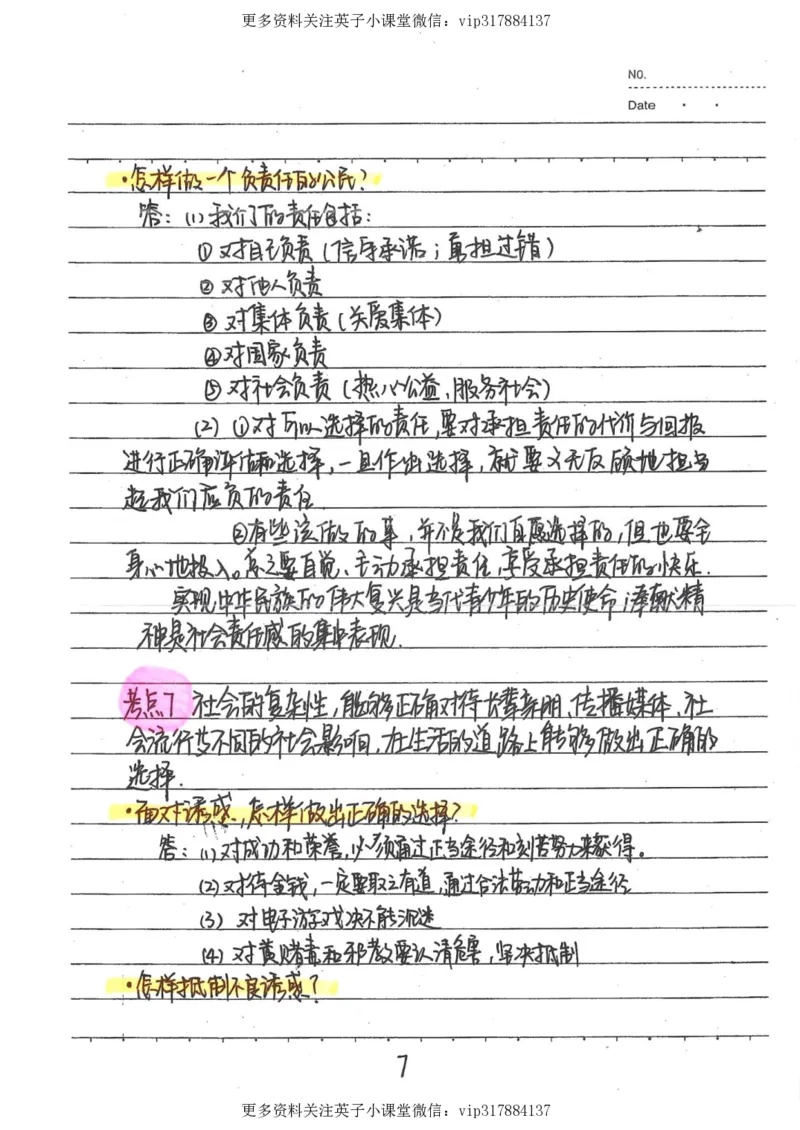 更多资料关注英子小课堂微信：vip317884137
NO.
Date
·怎样做一个负责任的公民？
答：(1)我们的责任包括：
①对自己负责（信守承诺；勇担过错）
②对他人负责
③对集体负责（关爱集体）
④对国家负责
⑤对社会负责（热心公益，服务社会）
(2)①对可以选择的责任，要对承担责任的代价与回报
进行正确评估和选择，一旦作出选择，就要义无反顾地担当
起我们应负的责任
②有些该做的事，并不是我们自愿选择的，但也要全
身心地投入。总之要自觉、主动承担责任，享受承担责任的快乐.
实现中华民族的伟大复兴是当代青少年的历史使命；奉献精
神是社会责任感的集中表现.
考点7 社会的复杂性，能够正确对待长辈亲朋、传播媒体、社
会流行等不同的社会影响，在生活的道路上能够做出正确的
选择.
·面对诱惑，怎样做出正确的选择？
答：(1)对成功和荣誉，必须通过正当途径和刻苦努力来获得。
(2)对待金钱，一定要取之有道，通过合法劳动和正当途径
(3) 对电子游戏决不能沉迷
(4) 对黄赌毒和邪教要认清危害，坚决抵制
·怎样抵制不良诱惑？
7
更多资料关注英子小课堂微信：vip317884137